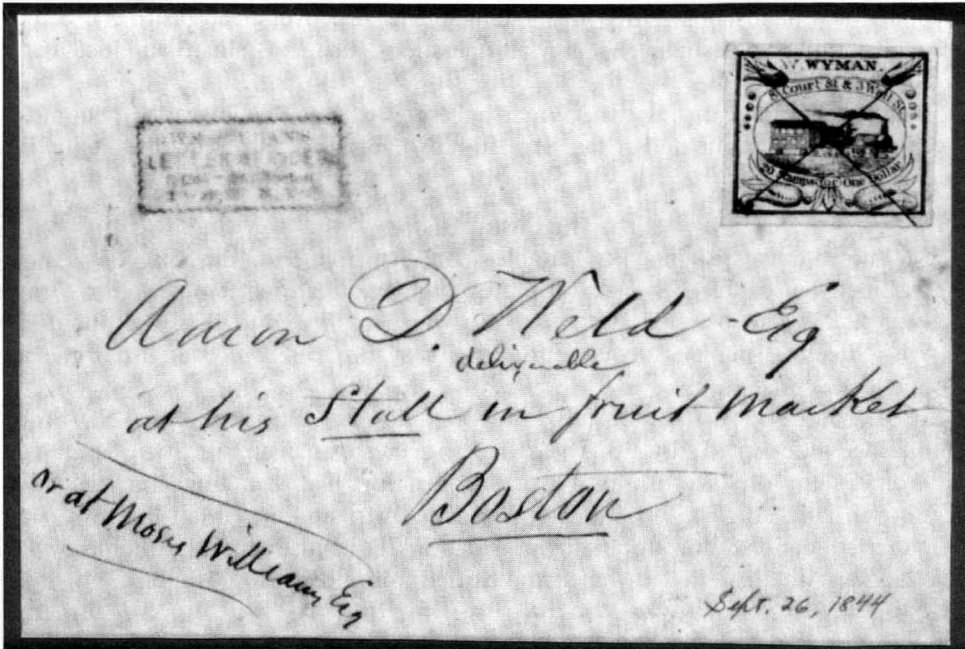 W. WYMAN.
8 Court St & 3 Wall St.
20 Stamps for One Dollar
LETTER OFFICE
Aaron D. Weld - Esq
deliverable
at his Stall in fruit Market
Boston
or at Moses Williams Esq
Sept. 26, 1844